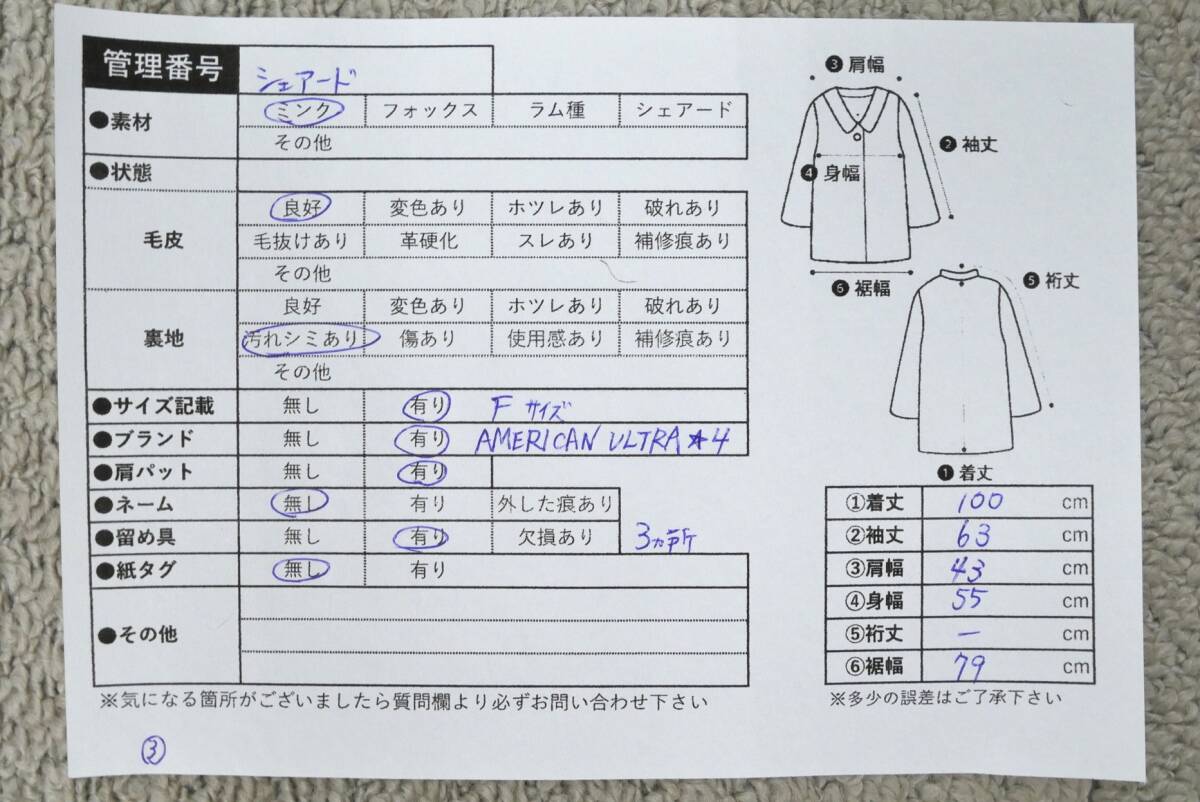 管理番号 シェアード
●素材 ミンク フォックス ラム種 シェアード
その他
●状態
毛皮 良好 変色あり ホツレあり 破れあり
毛抜けあり 革硬化 スレあり 補修痕あり
その他
裏地 良好 変色あり ホツレあり 破れあり
汚れシミあり 傷あり 使用感あり 補修痕あり
その他
●サイズ記載 無し 有り F サイズ
●ブランド 無し 有り AMERICAN ULTRA★4
●肩パット 無し 有り
●ネーム 無し 有り 外した痕あり
●留め具 無し 有り 欠損あり 3ヵ所
●紙タグ 無し 有り
●その他
※気になる箇所がございましたら質問欄より必ずお問い合わせ下さい
③
❸ 肩幅
❷ 袖丈
❹ 身幅
❻ 裾幅
❺ 裄丈
❶ 着丈
①着丈 100 cm
②袖丈 63 cm
③肩幅 43 cm
④身幅 55 cm
⑤裄丈 ー cm
⑥裾幅 79 cm
※多少の誤差はご了承下さい